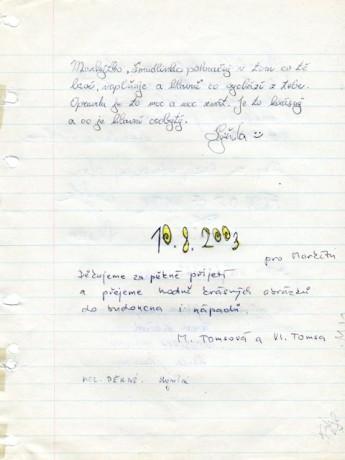 pokračuj v tom co tě
baví, naplňuje a hlavně co vychází z tebe.
Opravdu je to moc a moc znát. Je to krásný
a co je hlavní osobitý.
10.8.2003
pro Markétu
Děkujeme za pěkné přijetí
a přejeme hodně krásných obrázků
do budoucna i nápadů.
M. Tomsová a Vl. Tomsa